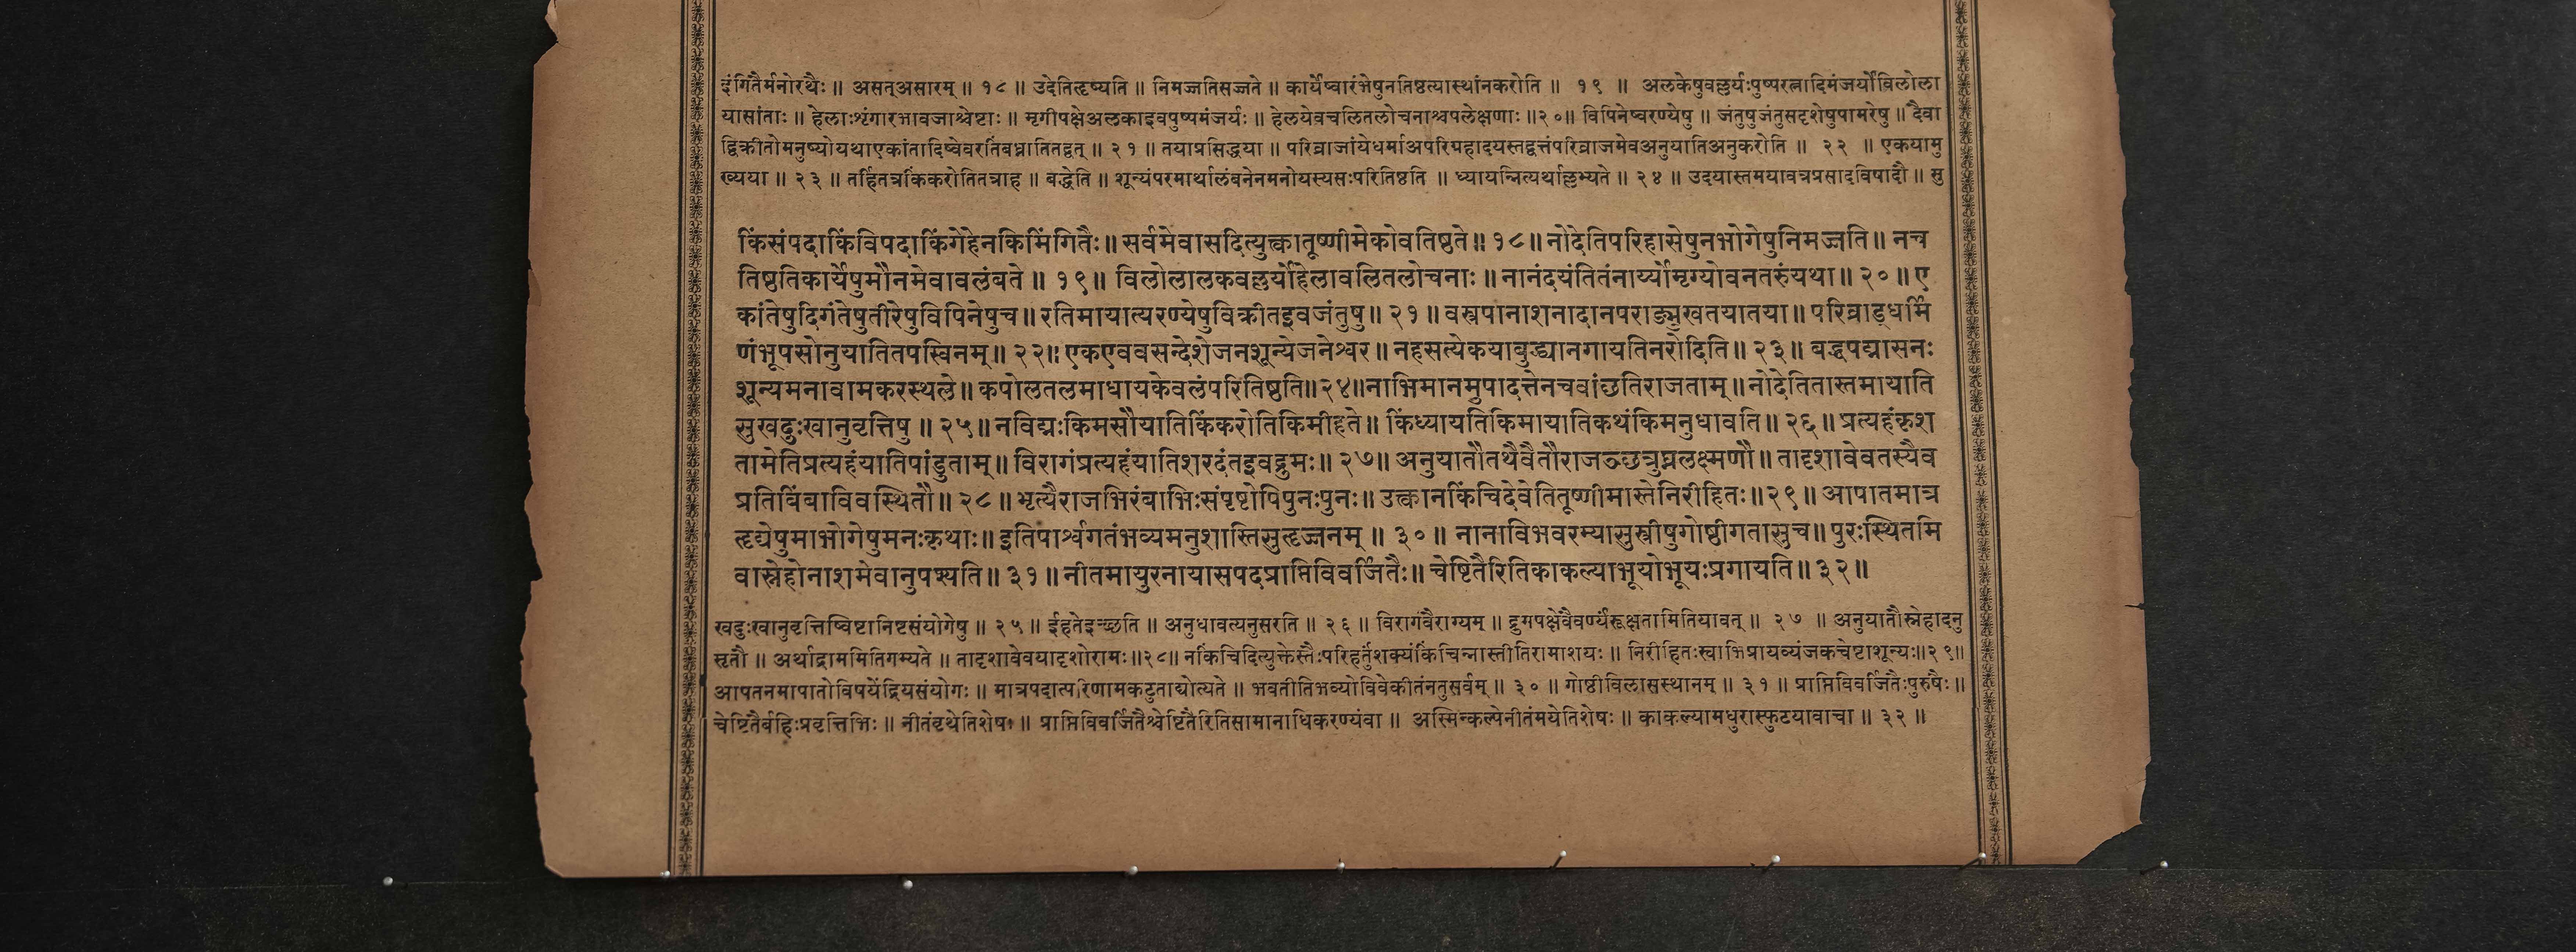 इंगितैर्मनोरथैः ॥ असत्असारम् ॥ १८ ॥ उदेतिहृष्यति ॥ निमज्जतिसज्जते ॥ कार्येष्वारंभेषुनतिष्ठत्यास्थांनकरोति ॥ १९ ॥ अलकेषुवल्लर्यःपुष्परत्नादिमंजर्योविलोला
यासांताः ॥ हेलाःशृंगारभावजाश्चेष्टाः ॥ मृगीपक्षेअलकाइवपुष्पमंजर्यः ॥ हेलयेवचलितलोचनाश्चपलेक्षणाः ॥२०॥ विपिनेष्वरण्येषु ॥ जंतुषुजंतुसदृशेषुपामरेषु ॥ दैवा
द्विक्रीतोमनुष्योयथाएकांतादिष्वेवरतिंबध्नातितद्वत् ॥ २१ ॥ तयाप्रसिद्धया ॥ परिव्राजांयेधर्माअपरिग्रहादयस्तद्वत्तंपरिव्राजमेवअनुयातिअनुकरोति ॥ २२ ॥ एकयामु
ख्यया ॥ २३ ॥ तर्हितत्रकिंकरोतितत्राह ॥ बद्धेति ॥ शून्यंपरमार्थालंबनेनमनोयस्यसःपरितिष्ठति ॥ ध्यायन्नित्यर्थाल्लभ्यते ॥ २४ ॥ उदयास्तमयावत्रप्रसादविषादौ ॥ सु
किंसंपदाकिंविपदाकिंगेहेनकिमिंगितैः ॥ सर्वमेवासदित्युक्त्वातूष्णीमेकोवतिष्ठते ॥ १८ ॥ नोदेतिपरिहासेषुनभोगेषुनिमज्जति ॥ नच
तिष्ठतिकार्येषुमौनमेवावलंबते ॥ १९ ॥ विलोलालकवल्लर्योहेलावलितलोचनाः ॥ नानंदयंतितंनार्य्योमृग्योवनतरुंयथा ॥ २० ॥ ए
कांतेषुदिगंतेषुतीरेषुविपिनेषुच ॥ रतिमायात्यरण्येषुविक्रीतइवजंतुषु ॥ २१ ॥ वस्त्रपानाशनादानपराङ्मुखतयातया ॥ परिव्राड्धर्मि
णंभूपसोनुयातितपस्विनम् ॥ २२ ॥ एकएववसन्देशेजनशून्येजनेश्वर ॥ नहसत्येकयाबुद्ध्यानगायतिनरोदिति ॥ २३ ॥ बद्धपद्मासनः
शून्यमनावामकरस्थले ॥ कपोलतलमाधायकेवलंपरितिष्ठति ॥ २४ ॥ नाभिमानमुपादत्तेनचवांछतिराजताम् ॥ नोदेतितास्तमायाति
सुखदुःखानुवृत्तिषु ॥ २५ ॥ नविद्मःकिमसौयातिकिंकरोतिकिमीहते ॥ किंध्यायतिकिमायातिकथंकिमनुधावति ॥ २६ ॥ प्रत्यहंकृश
तामेतिप्रत्यहंयातिपांडुताम् ॥ विरागंप्रत्यहंयातिशरदंतइवद्रुमः ॥ २७ ॥ अनुयातौतथैवैतौराजञ्छत्रुघ्नलक्ष्मणौ ॥ तादृशावेवतस्यैव
प्रतिबिंबाविवस्थितौ ॥ २८ ॥ भृत्यैराजभिरंबाभिःसंपृष्टोपिपुनःपुनः ॥ उक्त्वानकिंचिदेवेतितूष्णीमास्तेनिरीहितः ॥ २९ ॥ आपातमात्र
हृद्येषुमाभोगेषुमनःकृथाः ॥ इतिपार्श्वगतंभव्यमनुशास्तिसुहृज्जनम् ॥ ३० ॥ नानाविभवरम्यासुस्त्रीषुगोष्ठीगतासुच ॥ पुरःस्थितमि
वास्नेहोनाशमेवानुपश्यति ॥ ३१ ॥ नीतमायुरनायासपदप्राप्तिविवर्जितैः ॥ चेष्टितैरितिकाकल्याभूयोभूयःप्रगायति ॥ ३२ ॥
खदुःखानुवृत्तिष्विष्टानिष्टसंयोगेषु ॥ २५ ॥ ईहतेइच्छति ॥ अनुधावत्यनुसरति ॥ २६ ॥ विरागंवैराग्यम् ॥ द्रुमपक्षेवैवर्ण्यंरूक्षतामितियावत् ॥ २७ ॥ अनुयातौस्नेहादनु
सृतौ ॥ अर्थाद्राममितिगम्यते ॥ तादृशावेवयादृशोरामः ॥२८॥ नकिंचिदित्युक्तेस्तैःपरिहर्तुंशक्यंकिंचिन्नास्तीतिरामाशयः ॥ निरीहितःस्वाभिप्रायव्यंजकचेष्टाशून्यः ॥२९॥
आपतनमापातोविषयेंद्रियसंयोगः ॥ मात्रपदात्परिणामकटुताद्योत्यते ॥ भवतीतिभव्योविवेकीतंनतुसर्वम् ॥ ३० ॥ गोष्ठीविलासस्थानम् ॥ ३१ ॥ प्राप्तिविवर्जितैःपुरुषैः ॥
चेष्टितैर्बहिःप्रवृत्तिभिः ॥ नीतंवृथेतिशेषः ॥ प्राप्तिविवर्जितैश्चेष्टितैरितिसामानाधिकरण्यंवा ॥ अस्मिन्कल्पेनीतंमयेतिशेषः ॥ काकल्यामधुरास्फुटयावाचा ॥ ३२ ॥